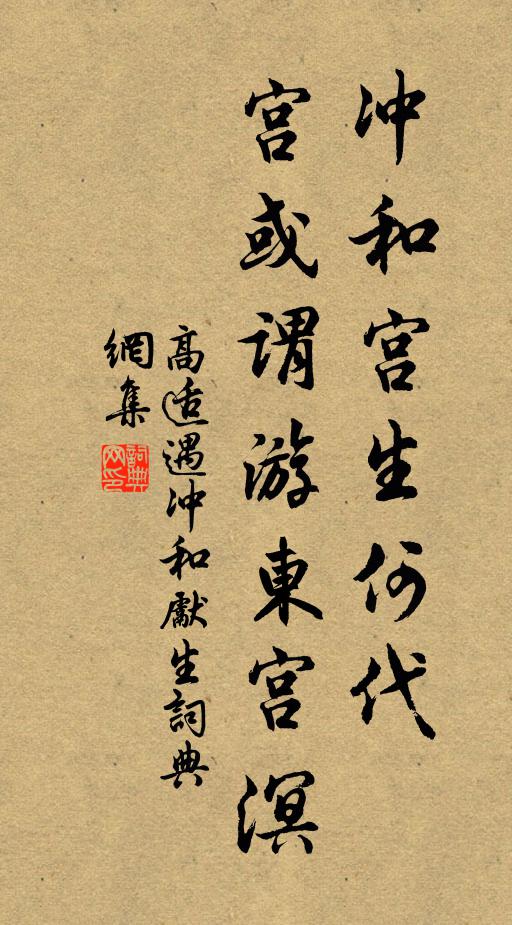 冲和宫生何代
宫或谓游東宫溟
高适遇冲和獻生詞典
網集
詞典
网印